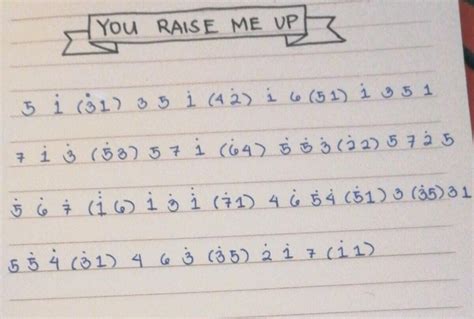 YOU RAISE ME UP
5 i̇ (3̇1) 3 5 i̇ (4 2̇) i̇ 6 (51) i̇ 3 5 1
7 i̇ 3̇ (5̇3) 5 7 i̇ (6̇4) 5̇ 5̇ 3̇ (2̇2) 5 7 2̇ 5
5̇ 6̇ 7̇ (i̇ 6) i̇ 3̇ i̇ (7̇1) 4 6 5̇ 4̇ (5̇1) 3 (3̇5) 3 1
5 5̇ 4̇ (3̇1) 4 6 3̇ (3̇5) 2̇ i̇ 7 (i̇ 1)